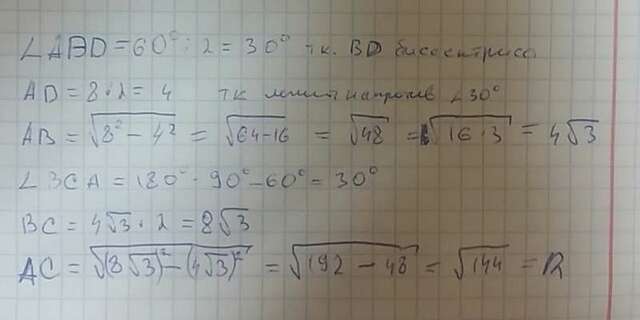 ∠ABD = 60° : 2 = 30° т.к. BD биссектриса
AD = 8 : 2 = 4 т к лежит напротив ∠30°
AB = √(8² − 4²) = √(64−16) = √48 = √(16·3) = 4√3
∠BCA = 180° - 90° − 60° = 30°
BC = 4√3 · 2 = 8√3
AC = √((8√3)² − (4√3)²) = √(192 − 48) = √144 = 12